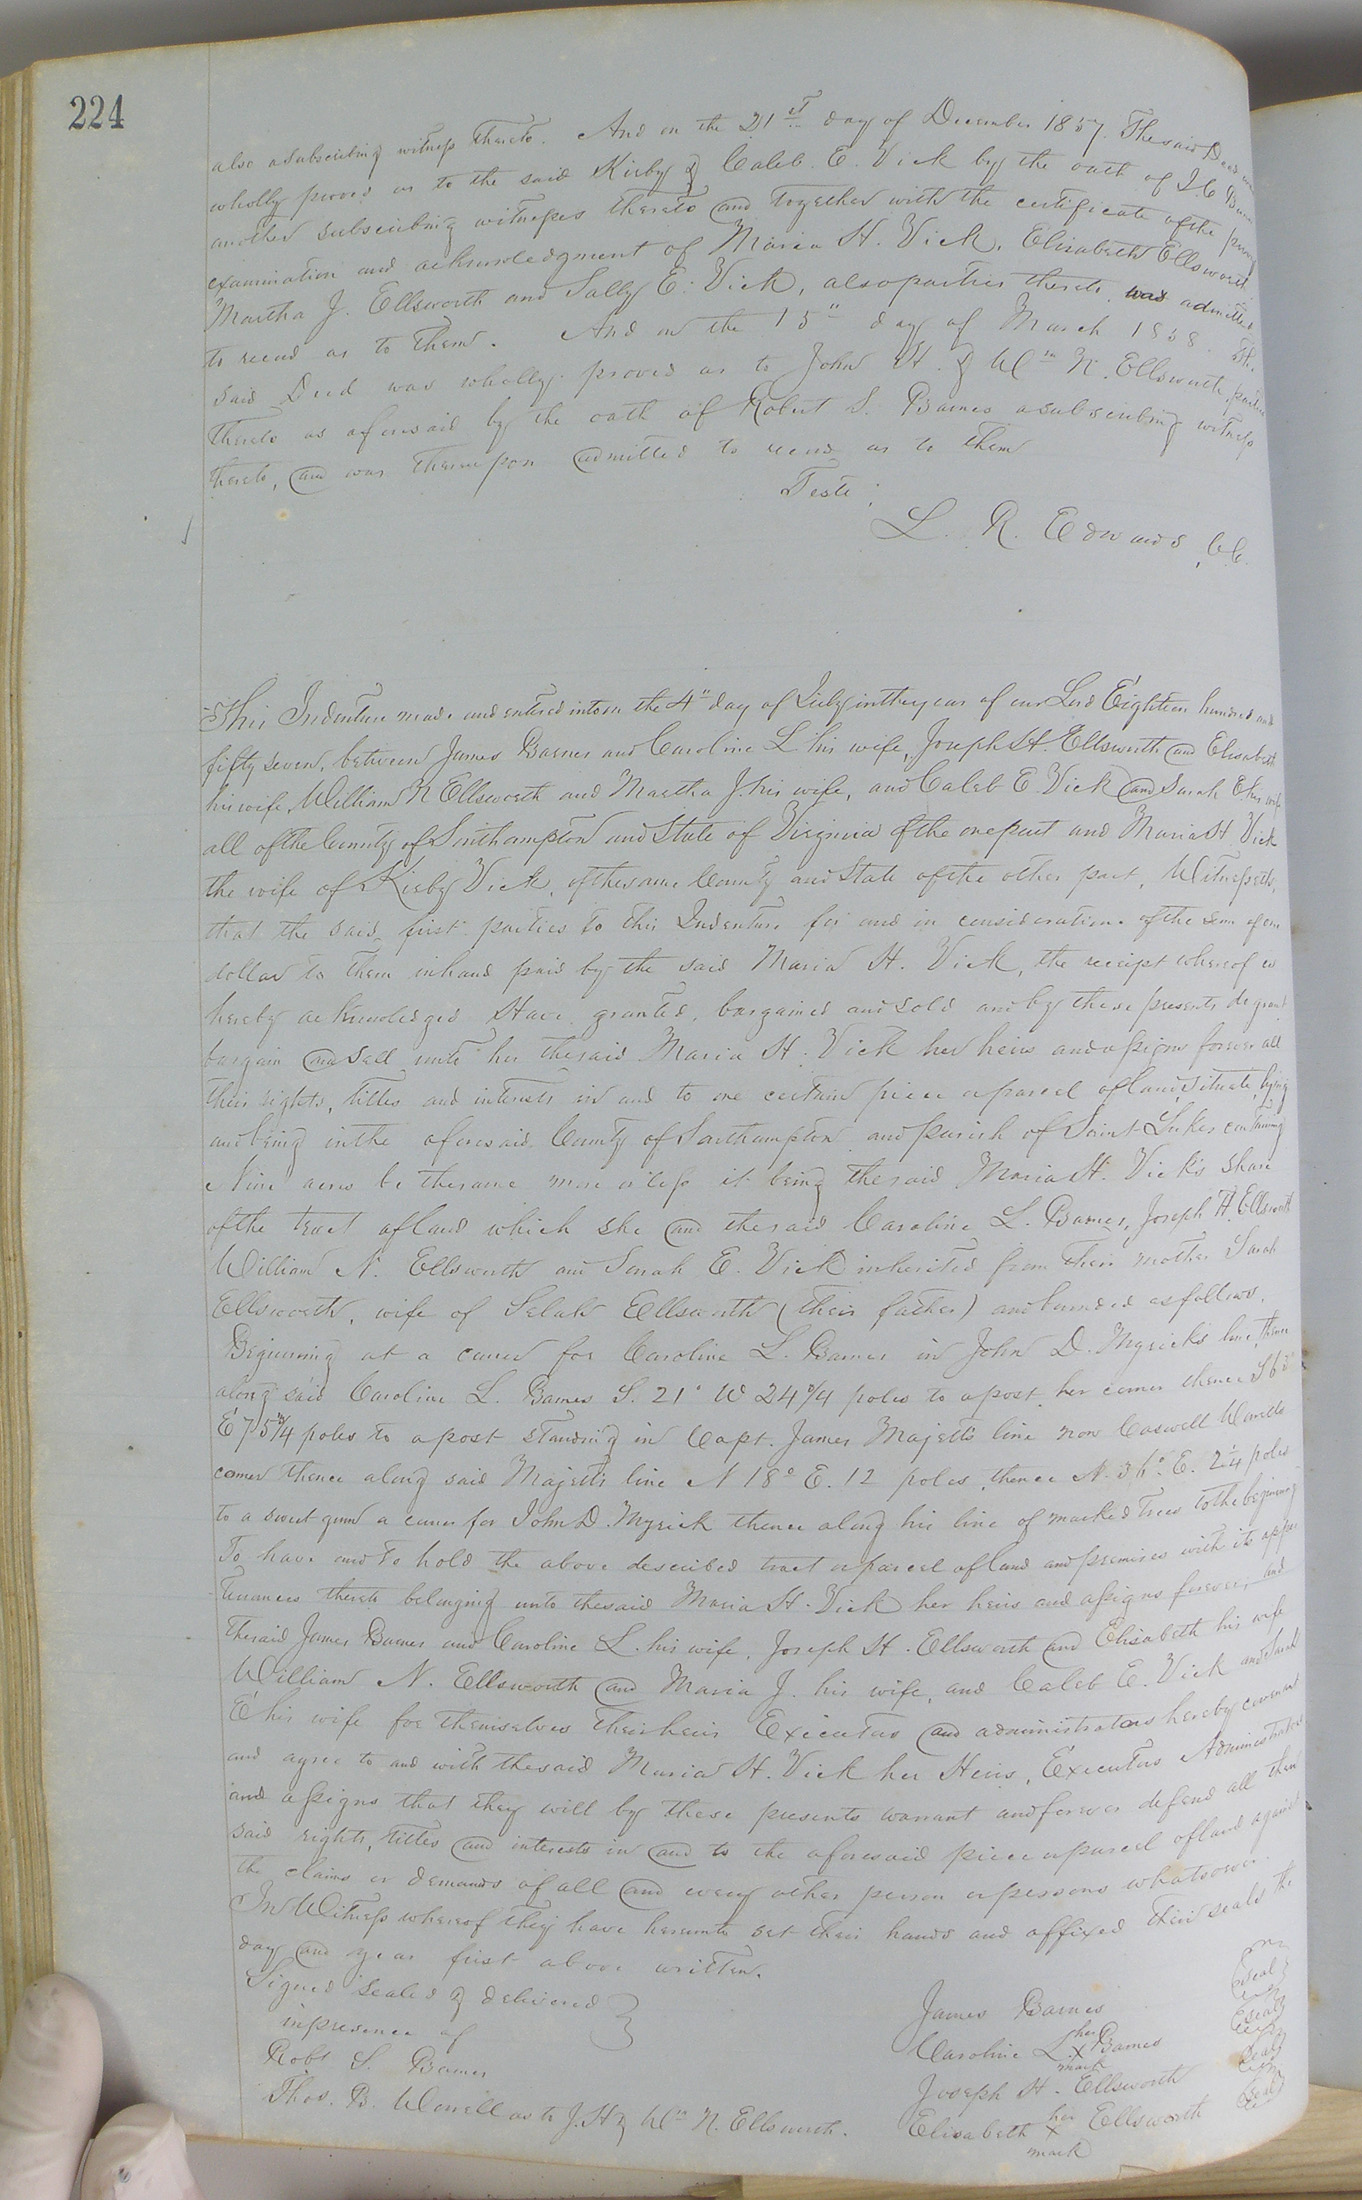 224
also a subscribing witness thereto. And on the 21st day of December 1857. The said Deed was
wholly proved as to the said Kirby & Caleb. E. Vick by the oath of
another subscribing witness thereto and together with the certificate of the privy
examination and acknowledgment of Maria H. Vick, Elisabeth Ellsworth
Martha J. Ellsworth and Sally E. Vick, also parties thereto was admitted
to record as to them. And on the 15" day of March 1858. The
said Deed was wholly proved as to John H. & Wm N. Ellsworth, parties
thereto as aforesaid by the oath of Robert S. Barnes a subscribing witness
thereto, and was thereupon admitted to record as to them
Teste:
L. R. Edwards, C.C.
This Indenture made and entered into on the 4" day of July in the year of our Lord Eighteen hundred and
fifty seven, between James Barnes and Caroline L his wife, Joseph H. Ellsworth and Elisabeth
his wife, William N Ellsworth and Martha J. his wife, and Caleb E Vick and Sarah E. his wife
all of the County of Southampton and State of Virginia of the one part and Maria H Vick
the wife of Kirby Vick, of the same County and State of the other part, Witnesseth,
that the said first parties to this Indenture for and in consideration of the sum of one
dollar to them in hand paid by the said Maria H. Vick, the receipt whereof is
hereby acknowledged Have granted, bargained and sold and by these presents do grant
bargain and sell unto her the said Maria H. Vick her heirs and assigns forever all
their rights, titles and interests in and to one certain piece or parcel of land, situate, lying
and being in the aforesaid County of Southampton and parish of Saint Lukes containing
Nine acres be the same more or less it being the said Maria H. Vick's share
of the tract of land which she and the said Caroline L. Barnes, Joseph H. Ellsworth
William N. Ellsworth and Sarah E. Vick inherited from their mother Sarah
Ellsworth, wife of Selah Ellsworth (their father) and bounded as follows.
Beginning at a corner for Caroline L. Barnes in John D. Myrick's line, thence
along said Caroline L. Barnes S. 21° W 24 3/4 poles to a post her corner thence
E 75 3/4 poles to a post standing in Capt. James Majett's line now Caswell Worrells
corner thence along said Majett's line N 18° E. 12 poles, thence N. 36° E. 2 1/4 poles
to a sweet gum a corner for John D. Myrick thence along his line of marked trees to the beginning
To have and to hold the above described tract or parcel of land and premises with its appur
tenances thereto belonging unto the said Maria H. Vick her heirs and assigns forever, and
the said James Barnes and Caroline L. his wife, Joseph H. Ellsworth and Elisabeth his wife
William N. Ellsworth and Maria J. his wife, and Caleb E. Vick and Sarah
E his wife for themselves their heirs Executors and administrators hereby covenant
and agree to and with the said Maria H. Vick her Heirs, Executors Administrators
and assigns that they will by these presents warrant and forever defend all their
said rights, titles and interests in and to the aforesaid piece or parcel of land against
the claims or demands of all and every other person or persons whatsoever.
In Witness whereof they have hereunto set their hands and affixed their seals the
day and year first above written.
Signed sealed & delivered
in presence of
Robt S. Barnes
Thos. B. Worrell as to J. H & Wm N. Ellsworth.
James Barnes seal
Caroline L. her x mark Barnes seal
Joseph H. Ellsworth seal
Elisabeth her x mark Ellsworth seal